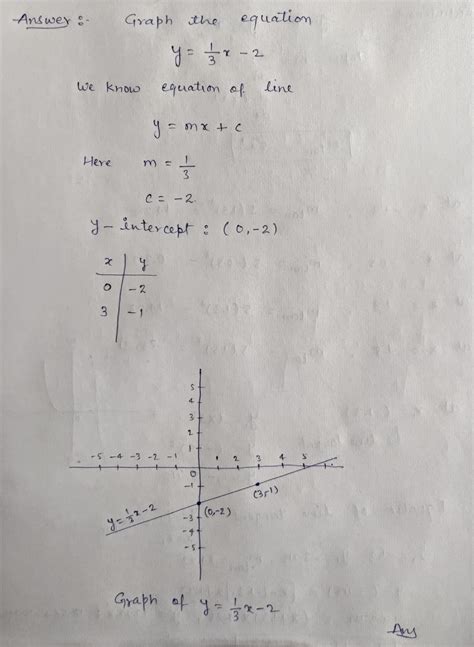 Answer :- Graph the equation
y = 1/3 x - 2
We know equation of line
y = mx + c
Here m = 1/3
c = -2.
y - intercept : (0, -2)
x | y
0 | -2
3 | -1
5
4
3
2
1
-5 -4 -3 -2 -1 0 1 2 3 4 5
-1
(3,-1)
(0,-2)
y = 1/3 x - 2
-3
-4
-5
Graph of y = 1/3 x - 2
Ans